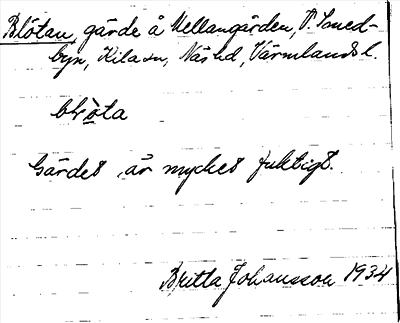 Blötan, gärde å Mellangården, P. Smed-
byn, Kila sn, Näs hd, Värmlands l.
blö̀ta
Gärdet är mycket fuktigt.
Britta Johansson 1934